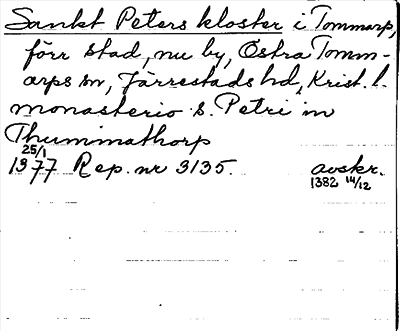 Sankt Peters kloster i Tommarp,
förr stad, nu by, Östra Tomm-
arps sn, Järrestads hd, Krist. l.
monasterio s. Petri in
Thummathorp
25/1
1377 Rep. nr 3135. avskr.
1382 14/12